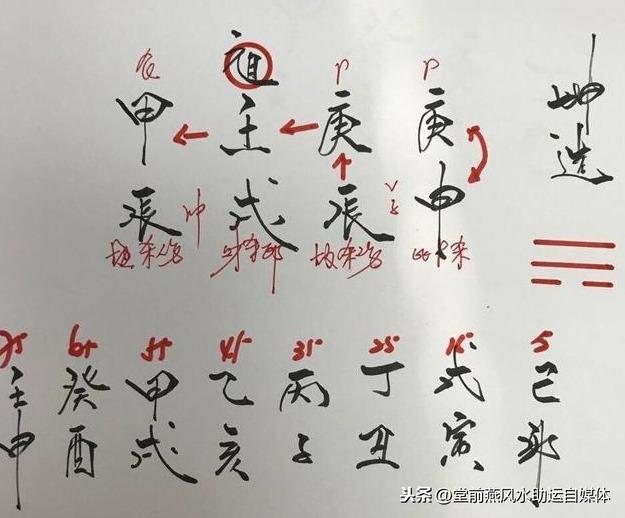 坤造
甲 壬 庚 庚
辰 冲 戌 辰 申
75 65 55 45 35 25 15 5
壬 癸 甲 乙 丙 丁 戊 己
申 酉 戌 亥 子 丑 寅 卯
头条 @堂前燕风水助运自媒体